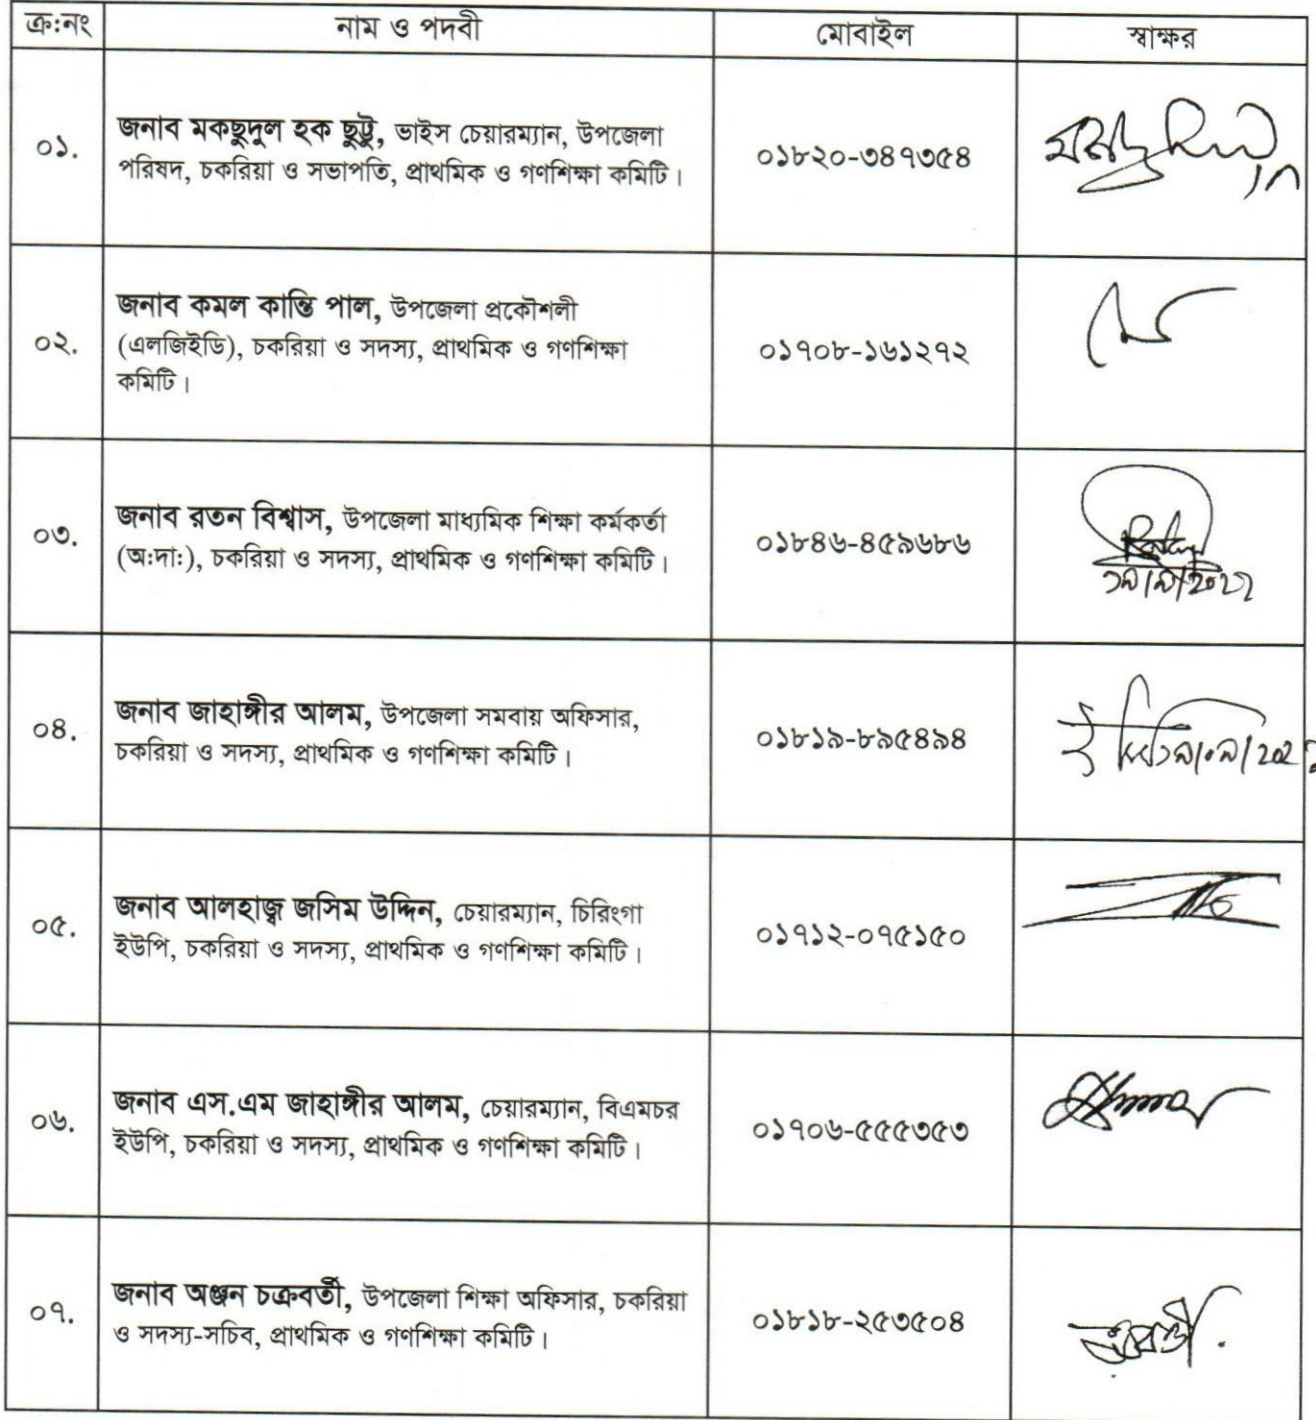 ক্র:নং নাম ও পদবী মোবাইল স্বাক্ষর
০১. জনাব মকছুদুল হক ছুট্টু, ভাইস চেয়ারম্যান, উপজেলা
পরিষদ, চকরিয়া ও সভাপতি, প্রাথমিক ও গণশিক্ষা কমিটি। ০১৮২০-৩৪৭৩৫৪
জনাব কমল কান্তি পাল, উপজেলা প্রকৌশলী
০২. (এলজিইডি), চকরিয়া ও সদস্য, প্রাথমিক ও গণশিক্ষা ০১৭০৮-১৬১২৭২
কমিটি।
০৩. জনাব রতন বিশ্বাস, উপজেলা মাধ্যমিক শিক্ষা কর্মকর্তা
(অ:দা:), চকরিয়া ও সদস্য, প্রাথমিক ও গণশিক্ষা কমিটি। ০১৮৪৬-৪৫৯৬৮৬
০৪. জনাব জাহাঙ্গীর আলম, উপজেলা সমবায় অফিসার,
চকরিয়া ও সদস্য, প্রাথমিক ও গণশিক্ষা কমিটি। ০১৮১৯-৮৯৫৪৯৪
০৫. জনাব আলহাজ্ব জসিম উদ্দিন, চেয়ারম্যান, চিরিংগা
ইউপি, চকরিয়া ও সদস্য, প্রাথমিক ও গণশিক্ষা কমিটি। ০১৭১২-০৭৫১৫০
০৬. জনাব এস.এম জাহাঙ্গীর আলম, চেয়ারম্যান, বিএমচর
ইউপি, চকরিয়া ও সদস্য, প্রাথমিক ও গণশিক্ষা কমিটি। ০১৭০৬-৫৫৫৩৫৩
০৭. জনাব অঞ্জন চক্রবর্তী, উপজেলা শিক্ষা অফিসার, চকরিয়া
ও সদস্য-সচিব, প্রাথমিক ও গণশিক্ষা কমিটি। ০১৮১৮-২৫৩৫০৪